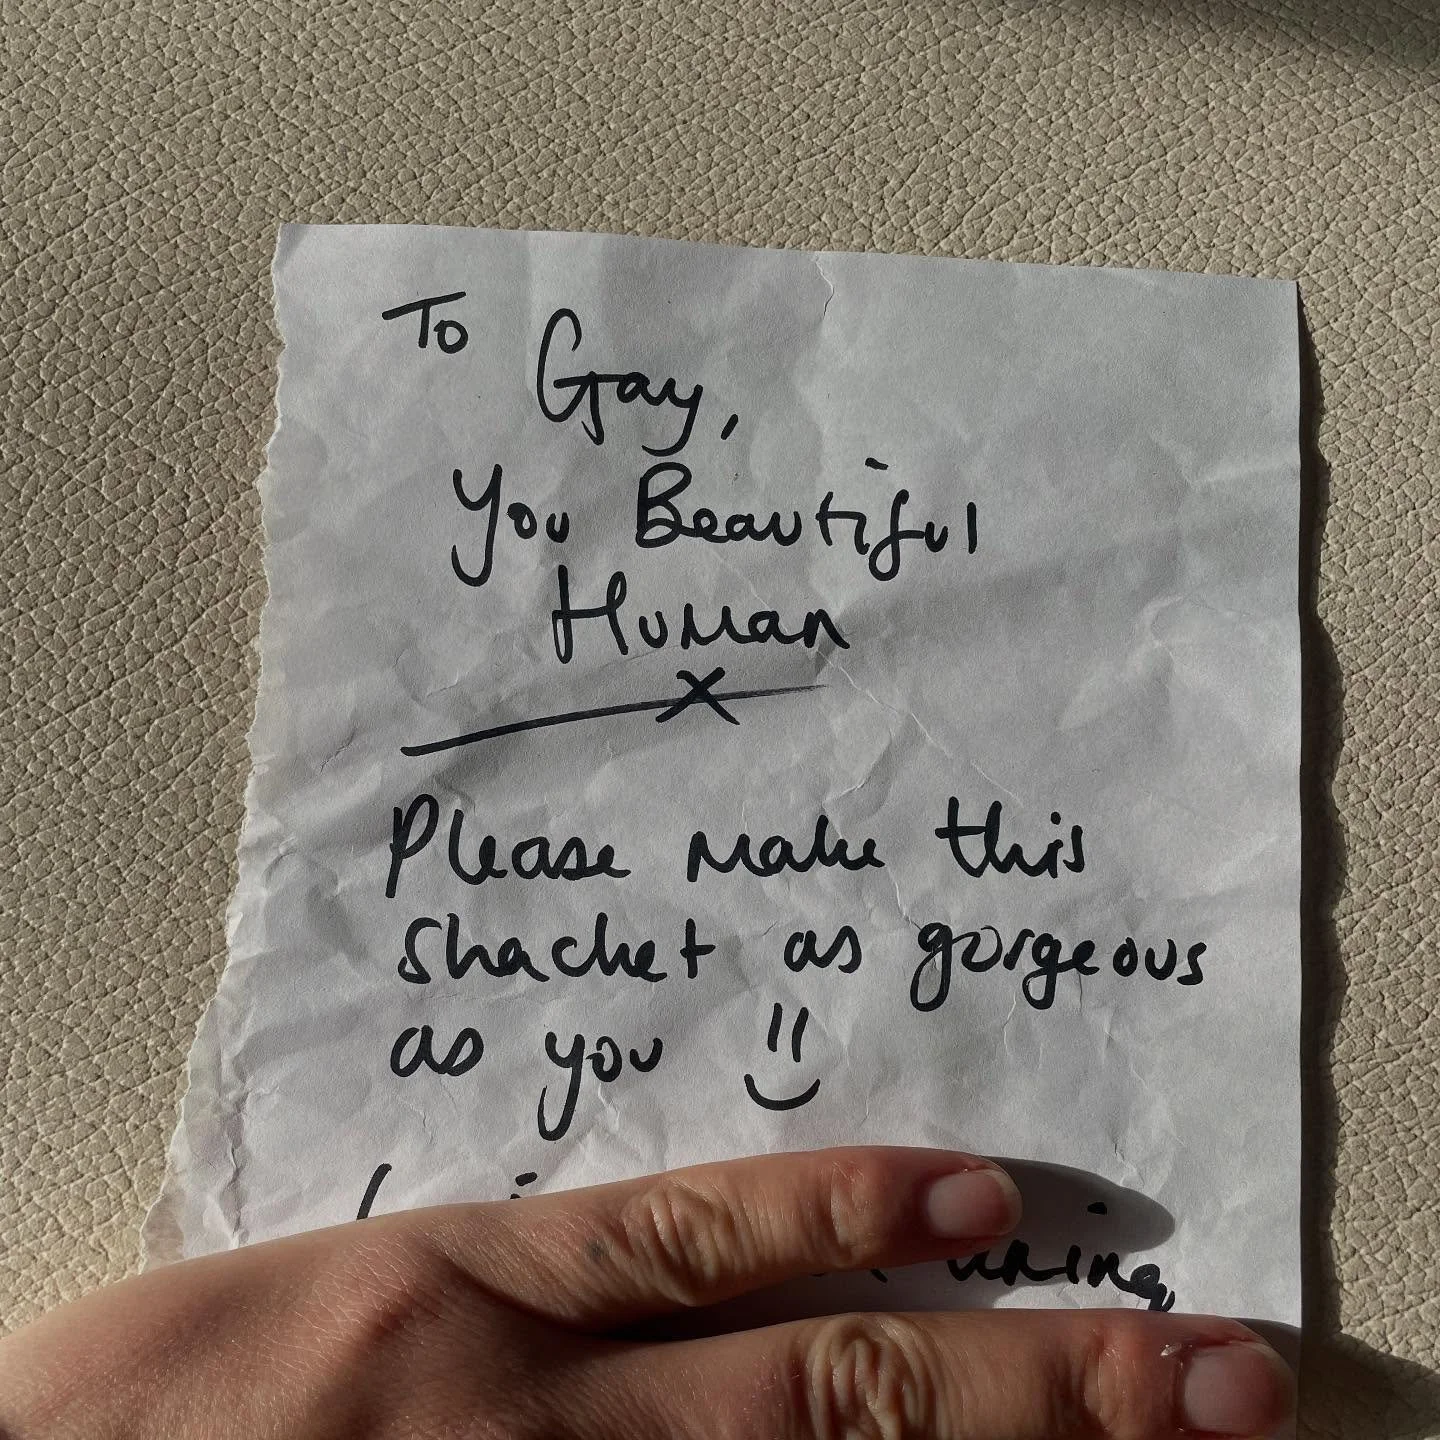 To Gay,
You Beautiful
Human
X
Please make this
shacket as gorgeous
as you